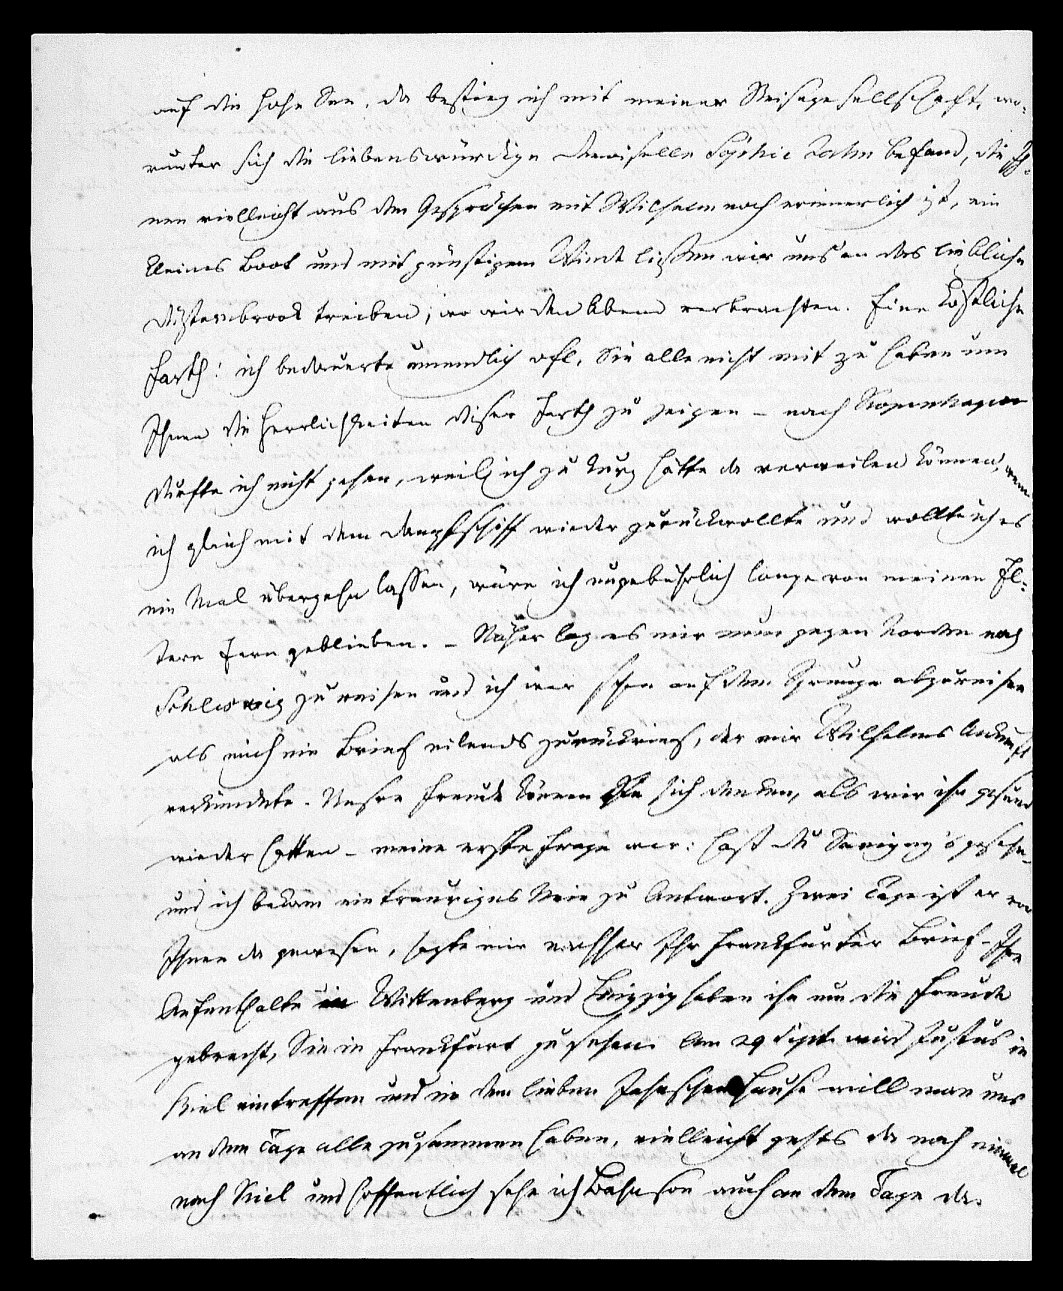 auf die hohe See, da bestieg ich mit meiner Reisegesellschaft, wo-
runter sich die liebenswürdige Demoiselle Sophie Dahm befand, die Ih-
nen vielleicht aus den Gesprächen mit Wilhelm noch erinnerlich ist, ein
kleines Boot und mit günstigem Winde ließen wir uns an das liebliche
Düsternbrook treiben, wo wir den Abend verbrachten. Eine köstliche
Farth! ich bedauerte unendlich oft, Sie alle nicht mit zu haben um
Ihnen die Herrlichkeiten dieser Farth zu zeigen – nach Kopenhagen
durfte ich nicht gehen, weil ich zu kurz hätte da verweilen können, wenn
ich gleich mit dem Dampfschiff wieder zurückwollte und wollte ich es
ein Mal übergehn lassen, wäre ich ungebührlich lange von meinen El-
tern fern geblieben. – Näher lag es mir nun gegen Norden nach
Schleswig zu reisen und ich war schon auf dem Sprunge abzureisen
als mich ein Brief eilends zurückrief, der mir Wilhelms Ankunft
verkündete. Unsre Freude können Sie sich denken, als wir ihn gesund
wieder hatten – meine erste Frage war: hast du Savigny's gesehn –
und ich bekam ein trauriges Nein zu Antwort. Zwei Tage ist er vor
Ihnen da gewesen, sagte mir nachher Ihr Frankfurter Brief – Ihr
Aufenthalte in Wittenberg und Leipzig haben ihn um die Freude
gebracht, Sie in Frankfurt zu sehen. Am 29 Sept. wird Justus in
Kiel eintreffen und in dem lieben Hause will man uns
an dem Tage alle zusammen haben, vielleicht gehts da noch einmal
nach Kiel und hoffentlich sehe ich auch an dem Tage da.